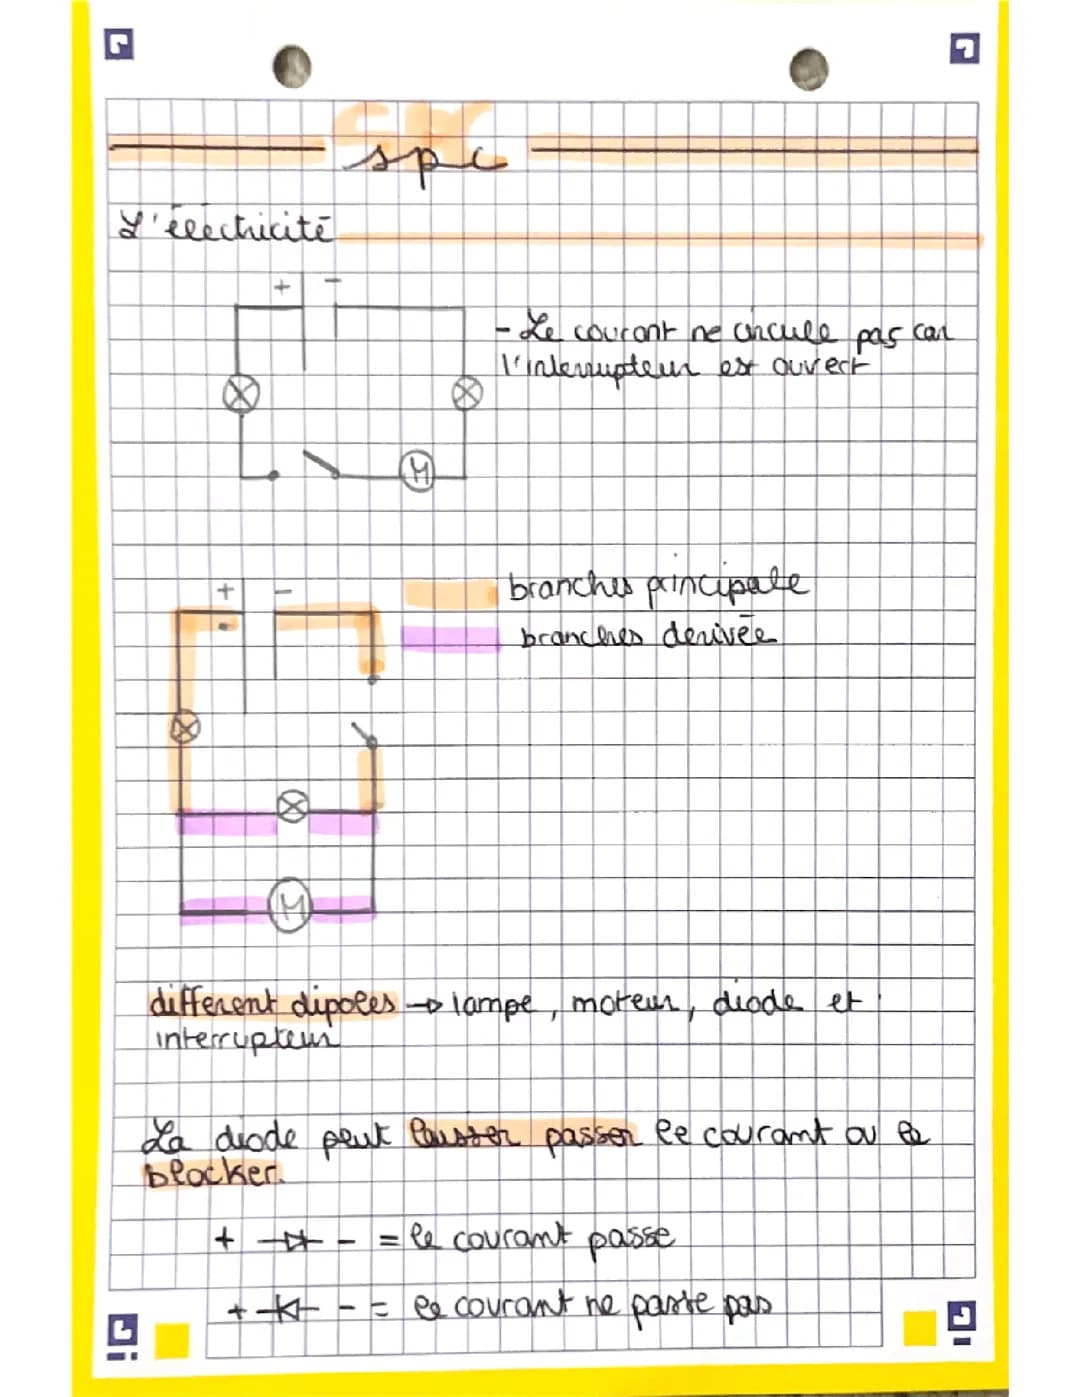 spc
L'électricité
+ -
- Le courant ne circule pas car
l'interrupteur est ouvert
M
+ -
branches principale
branches derivée
M
different dipoles → lampe, moteur, diode et
interrupteur
La diode peut laisser passer le courant ou le
blocker.
+ - = le courant passe
+ - = le courant ne passe pas